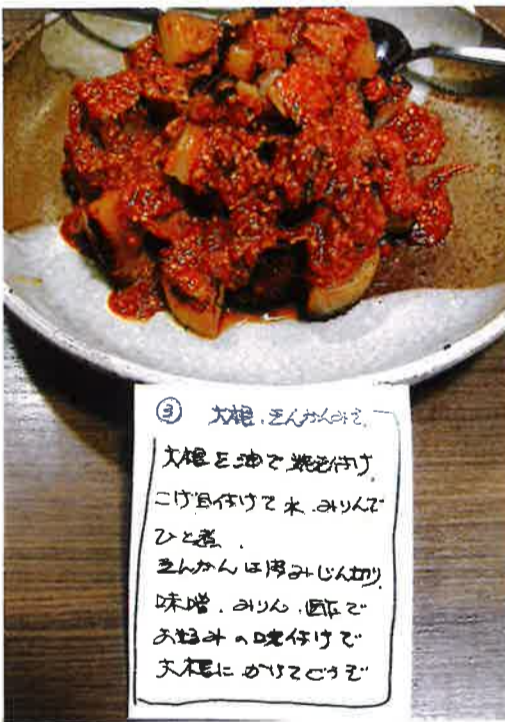 ③ 大根.きんかんみそ.
大根を油で焼き付け.
こげ目付けて水.みりんで
ひと煮.
きんかんは
みじん切り.
味噌.みりん.酢で
お好みの味付けで
大根にかけてどうぞ